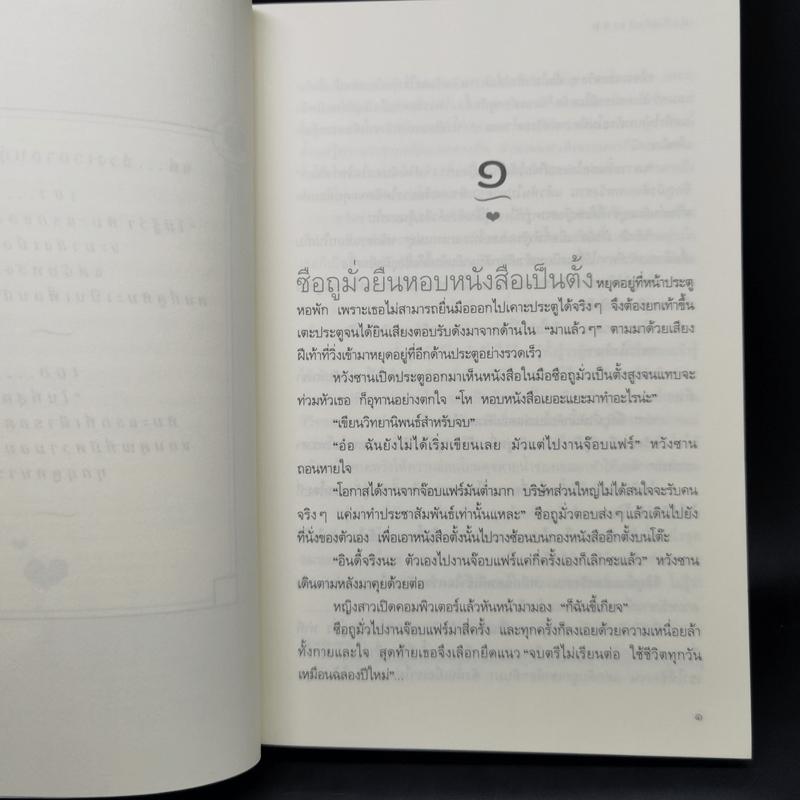 ๑
ซือถูมั่วยืนหอบหนังสือเป็นตั้ง หยุดอยู่ที่หน้าประตู
หอพัก เพราะเธอไม่สามารถยื่นมือออกไปเคาะประตูได้จริงๆ จึงต้องยกเท้าขึ้น
เตะประตูจนได้ยินเสียงตอบรับดังมาจากด้านใน “มาแล้วๆ” ตามมาด้วยเสียง
ฝีเท้าที่วิ่งเข้ามาหยุดอยู่ที่อีกด้านประตูอย่างรวดเร็ว
หวังซานเปิดประตูออกมาเห็นหนังสือในมือซือถูมั่วเป็นตั้งสูงจนแทบจะ
ท่วมหัวเธอ ก็อุทานอย่างตกใจ “โห หอบหนังสือเยอะแยะมาทำอะไรน่ะ”
“เขียนวิทยานิพนธ์สำหรับจบ”
“อ๋อ ฉันยังไม่ได้เริ่มเขียนเลย มัวแต่ไปงานจ๊อบแฟร์” หวังซาน
ถอนหายใจ
“โอกาสได้งานจากจ๊อบแฟร์มันต่ำมาก บริษัทส่วนใหญ่ไม่ได้สนใจจะรับคน
จริงๆ แค่มาทำประชาสัมพันธ์เท่านั้นแหละ” ซือถูมั่วตอบส่งๆ แล้วเดินไปยัง
ที่นั่งของตัวเอง เพื่อเอาหนังสือตั้งนั้นไปวางซ้อนบนกองหนังสืออีกตั้งบนโต๊ะ
“อินดี้จริงนะ ตัวเองไปงานจ๊อบแฟร์แค่กี่ครั้งเองก็เลิกซะแล้ว” หวังซาน
เดินตามหลังมาคุยด้วยต่อ
หญิงสาวเปิดคอมพิวเตอร์แล้วหันหน้ามามอง “ก็ฉันขี้เกียจ”
ซือถูมั่วไปงานจ๊อบแฟร์มาสี่ครั้ง และทุกครั้งก็ลงเอยด้วยความเหนื่อยล้า
ทั้งกายและใจ สุดท้ายเธอจึงเลือกยึดแนว “จบตรีไม่เรียนต่อ ใช้ชีวิตทุกวัน
เหมือนฉลองปีใหม่”...
๑